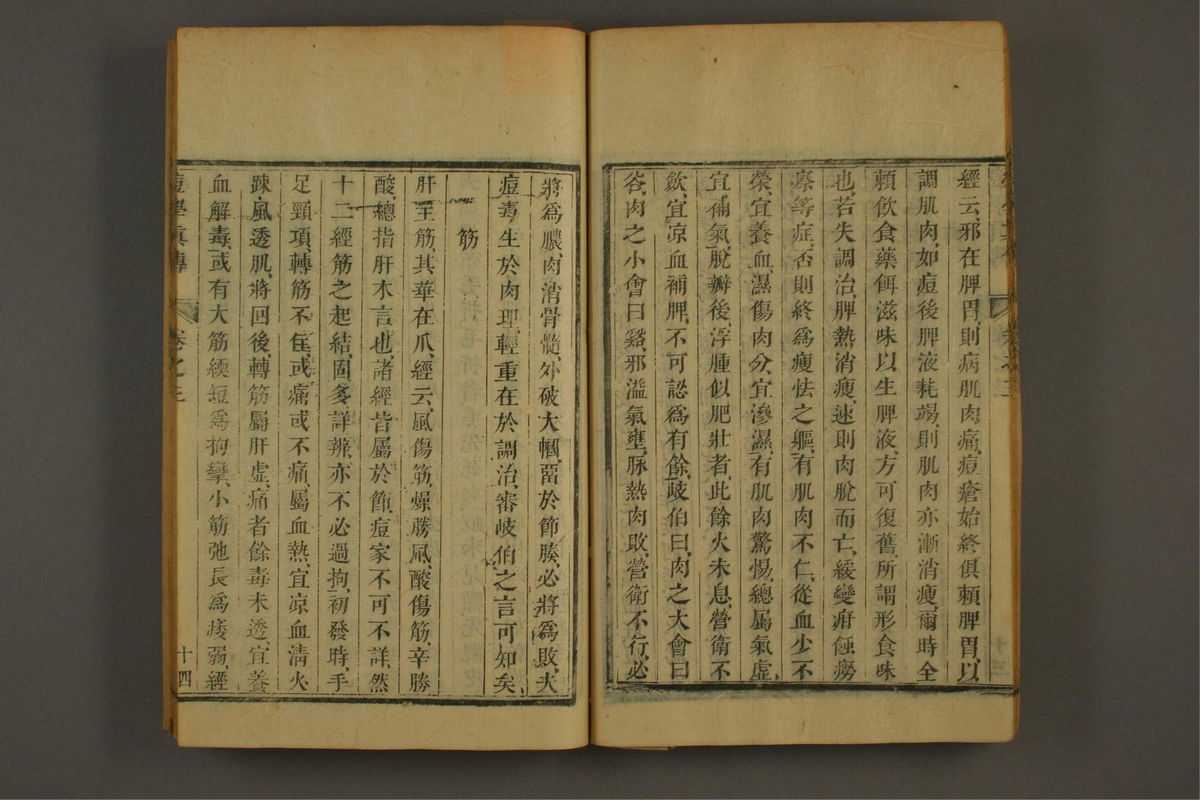 經云邪在脾胃則病肌肉痛痘瘡始終俱賴脾胃以
調肌肉如痘後脾液耗竭則肌肉亦漸消瘦爾時全
賴飲食藥餌滋味以生脾液方可復舊所謂形食味
也若失調治脾熱消瘦速則肉脫而亡緩變疳蝕癆
瘵等症否則終爲瘦怯之軀有肌肉不仁從血少不
榮宜養血濕傷肉分宜滲濕有肌肉驚惕總屬氣虛
宜補氣脫瓣後浮腫似肥壯者此餘火未息營衛不
歛宜凉血補脾不可認爲有餘岐伯曰肉之大會曰
谷肉之小會曰谿邪溢氣壅脉熱肉敗營衛不行必
十三
將爲膿肉消骨髓外破大膕畱於節腠必將爲敗夫
痘毒生於肉理輕重在於調治審岐伯之言可知矣
筋
肝主筋其華在爪經云風傷筋燥勝風酸傷筋辛勝
酸總指肝木言也諸經皆屬於節痘家不可不詳然
十二經筋之起結固多詳辨亦不必過拘初發時手
足頸項轉筋不一或痛或不痛屬血熱宜凉血清火
踈風透肌將回後轉筋屬肝虛痛者餘毒未透宜養
血解毒或有大筋緛短爲拘攣小筋弛長爲痿弱經
痘學真傳
卷之三
十四